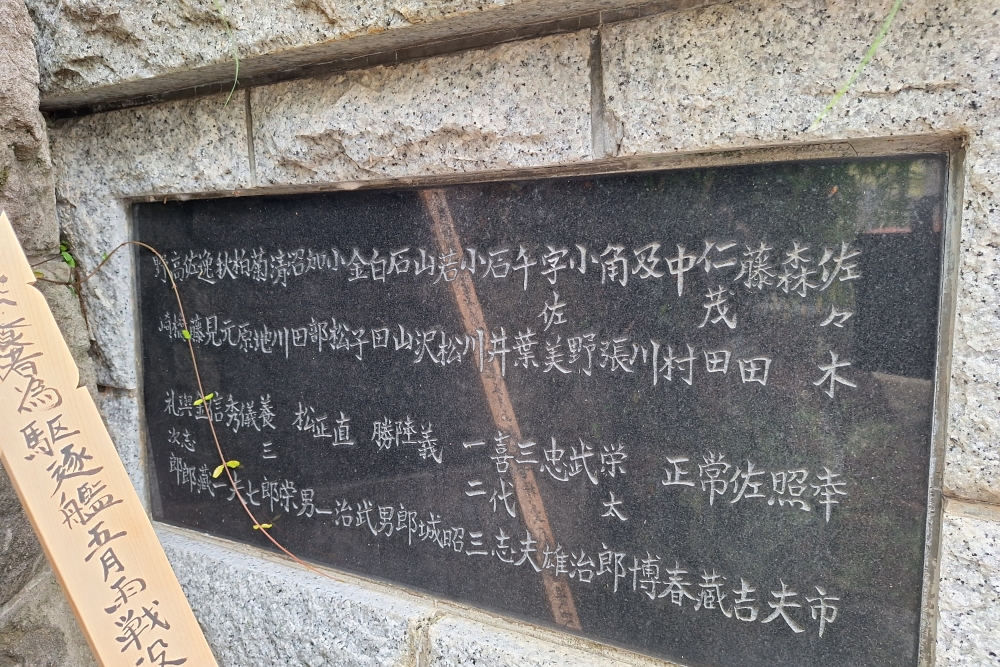 佐々木幸市
森照夫
藤田佐吉
仁茂田常藏
中村正春
及川博
角張栄太郎
小野武治
宇佐美忠雄
千葉三夫
石井喜代志
小川一二三
若松昭
山沢義城
石山陸郎
白田勝男
金子武
小松直治
加部正一
沼田松男
清川榮
菊地養三郎
柏原儀七
秋元秀夫
逸見信一
佐藤金藏
高橋與志郎
野崎礼次郎
養者為駆逐艦五月雨戦没